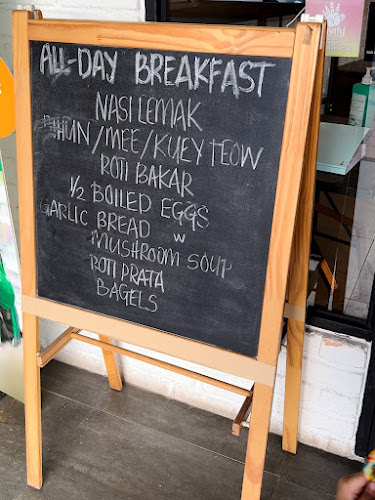 ALL-DAY BREAKFAST
NASI LEMAK
BIHUN/MEE/KUEY TEOW
ROTI BAKAR
1/2 BOILED EGGS
GARLIC BREAD W
MUSHROOM SOUP
ROTI PRATA
BAGELS